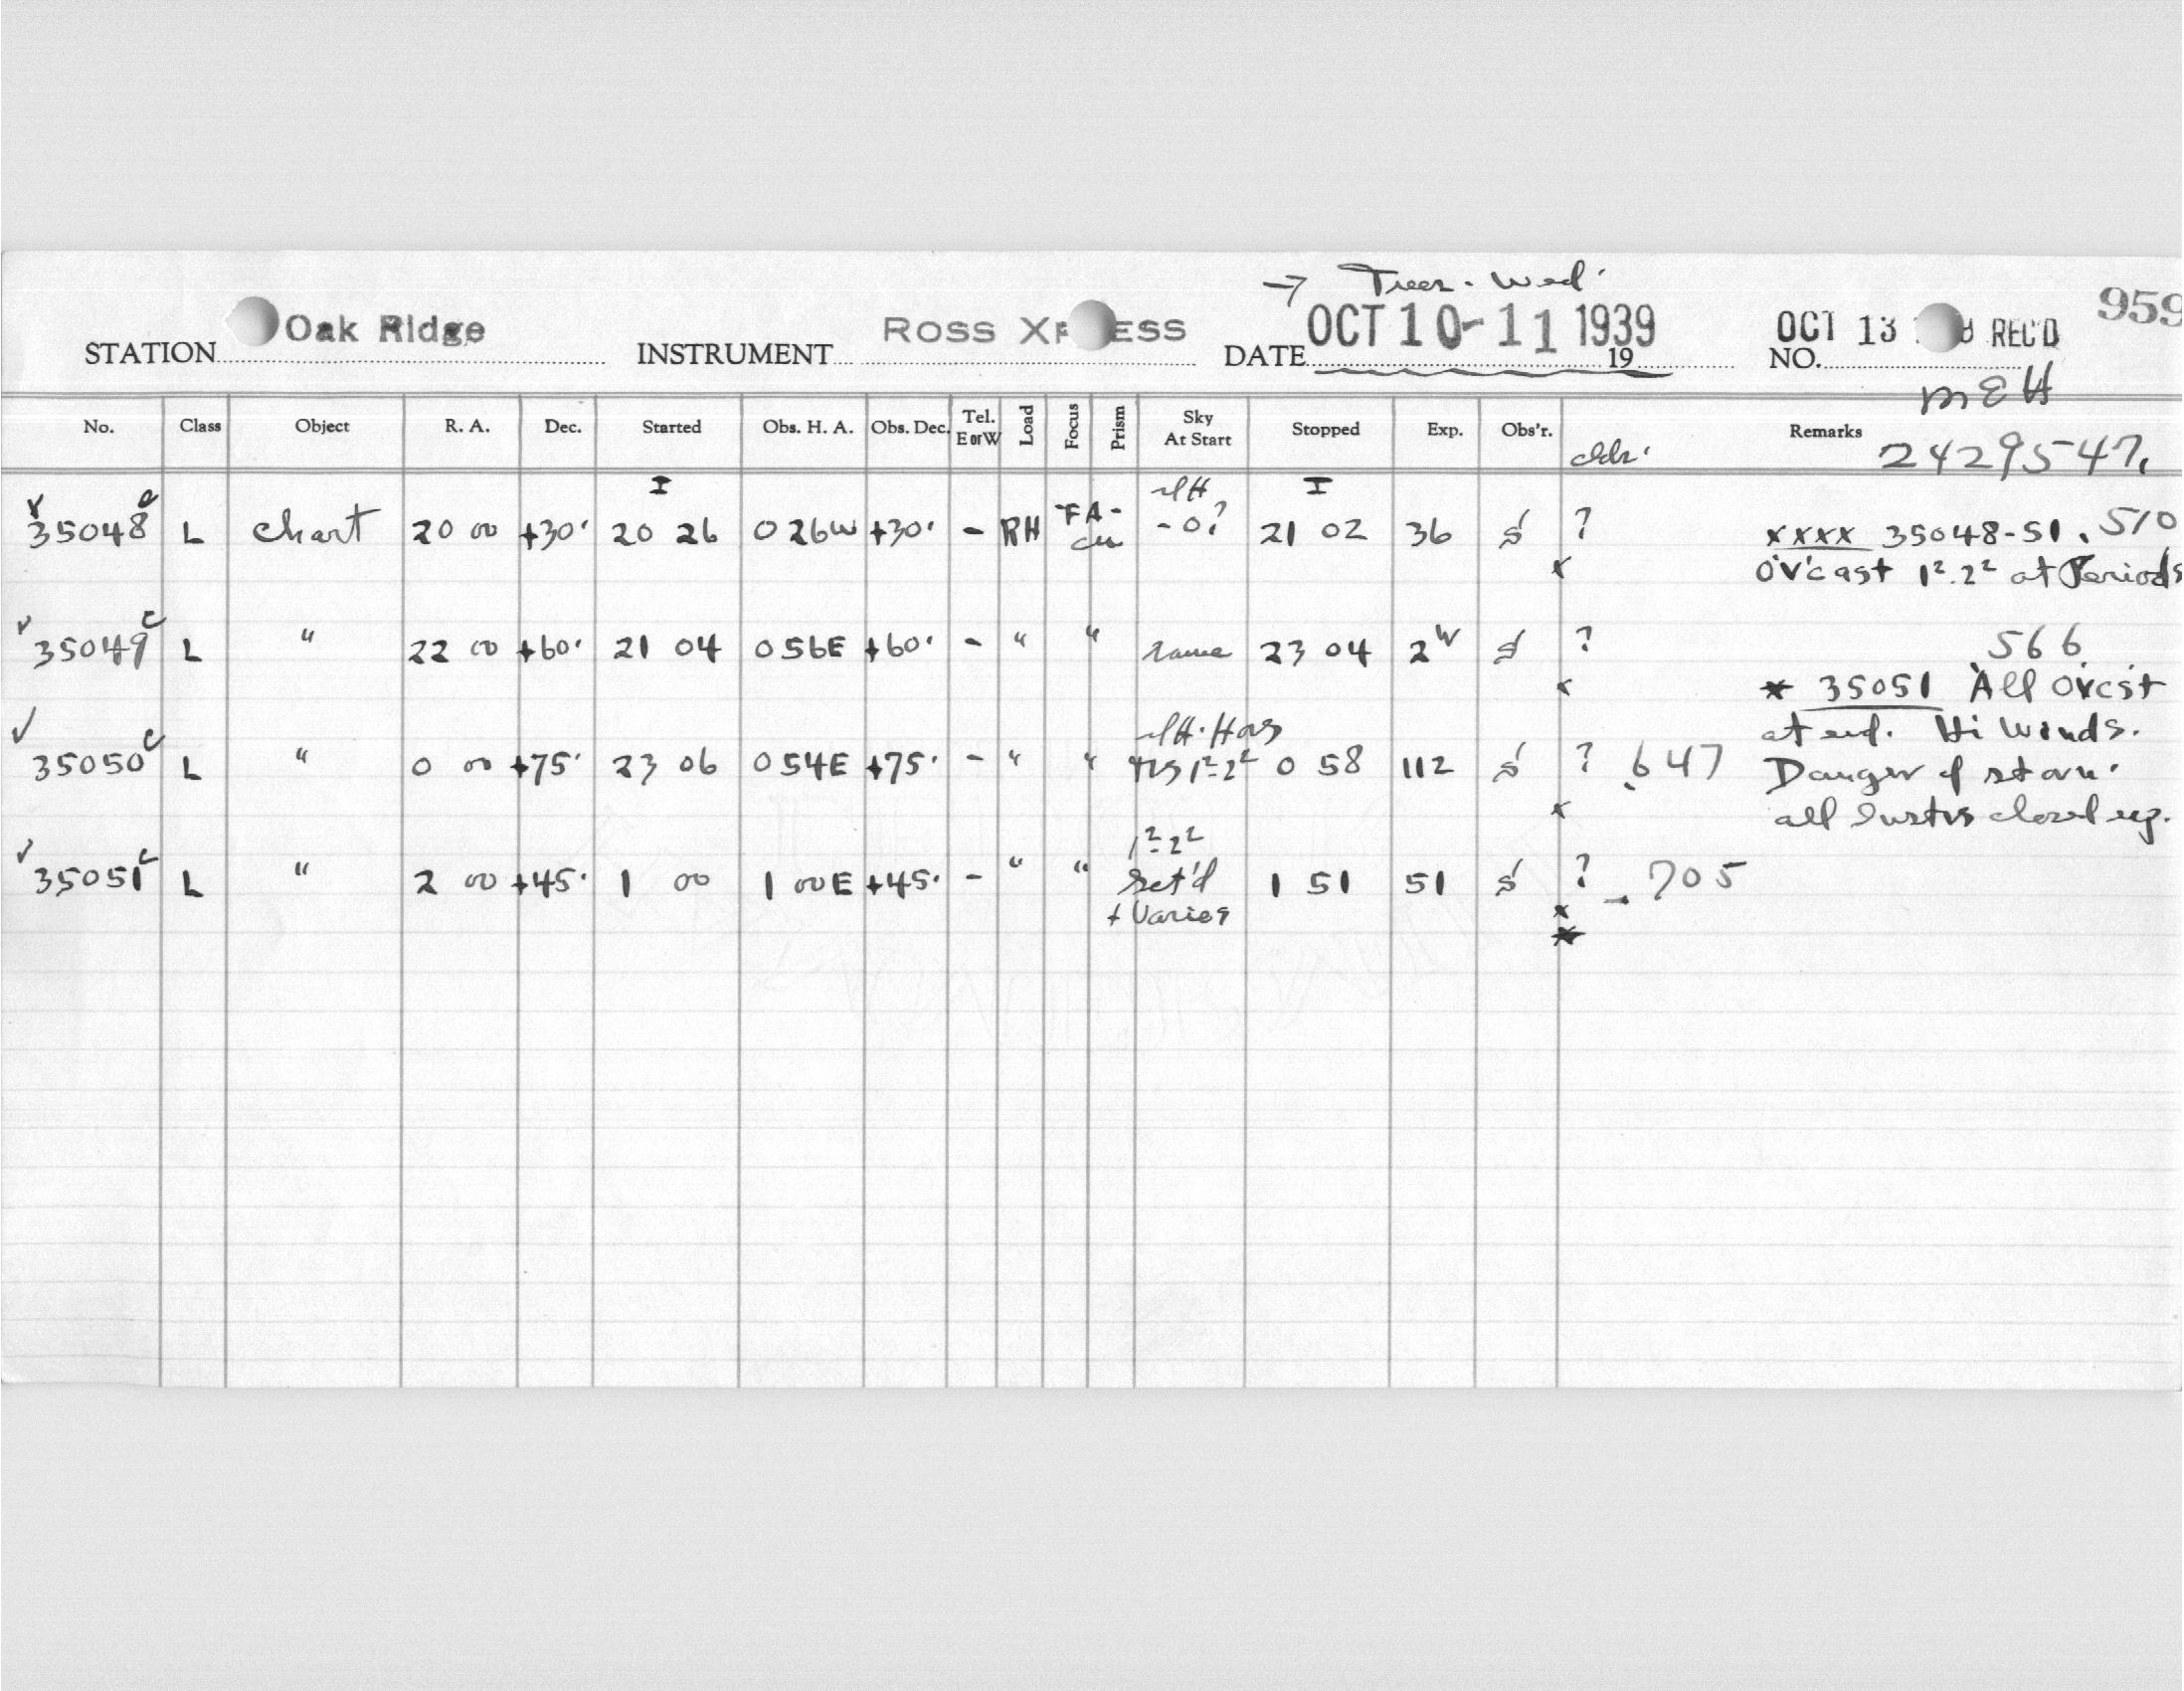 → Tues. - Wed.
959
STATION Oak Ridge INSTRUMENT ROSS XPRESS DATE OCT 10-11 1939 19 NO. OCT 13 REC'D
MEH
No. Class Object R. A. Dec. Started Obs. H. A. Obs. Dec. Tel. E or W Load Focus Prism Sky At Start Stopped Exp. Obs'r. Remarks 2429547.
I I
35048 c L Chart 20 00 +30° 20 26 0 26W +30° - RH FA- -0? 21 02 36 S ? xxxx 35048-51 .510
x Ov'cast 1²-2² at Periods
35049 c L " 22 00 +60° 21 04 0 56E +60° - " " same 23 04 2 S ? 566
x * 35051 All Ovcst
at end. Hi Winds.
35050 c L " 0 00 +75° 23 06 0 54E +75° - " " 1²-2² 0 58 112 S ? .647 Danger of storm.
x all closed up.
1²-2²
35051 c L " 2 00 +45° 1 00 1 00E +45° - " " Set'd 1 51 51 S ? .705
+ Varies x
*